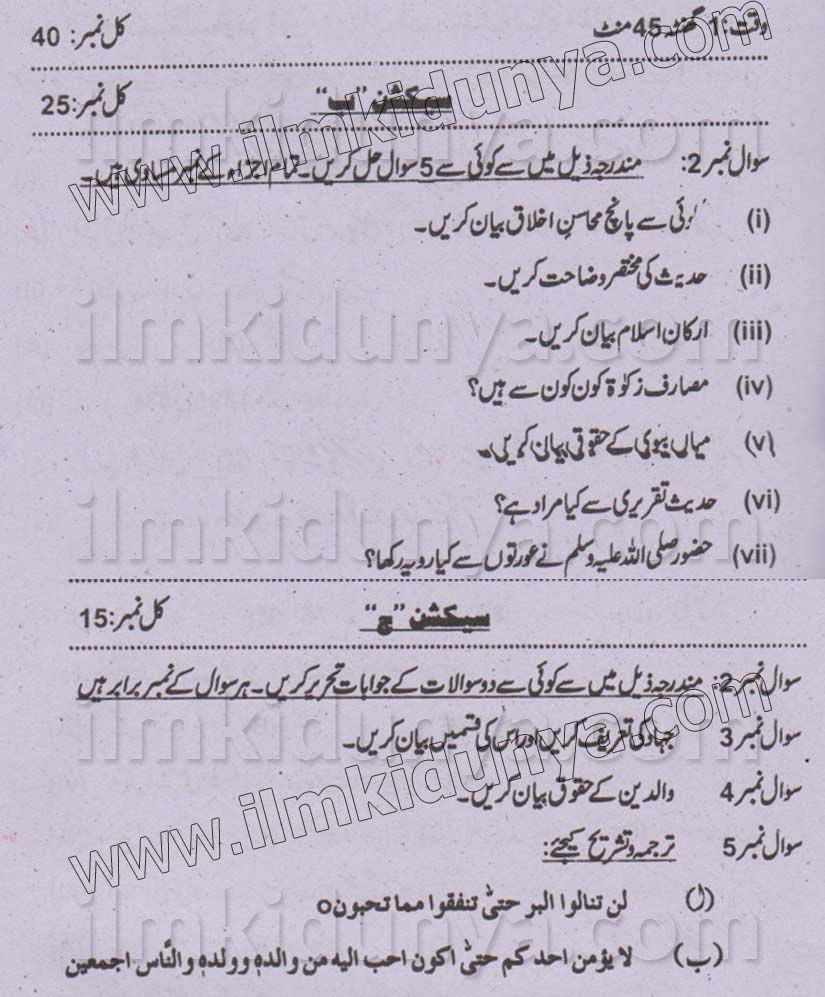 وقت: 1 گھنٹہ 45 منٹ کل نمبر: 40
سیکشن ”ب“ کل نمبر: 25
سوال نمبر 2: مندرجہ ذیل میں سے کوئی سے 5 سوال حل کریں۔ تمام اجزاء کے نمبر مساوی ہیں۔
(i) کوئی سے پانچ محاسنِ اخلاق بیان کریں۔
(ii) حدیث کی مختصر وضاحت کریں۔
(iii) ارکان اسلام بیان کریں۔
(iv) مصارف زکوٰۃ کون کون سے ہیں؟
(v) میاں بیوی کے حقوق بیان کریں۔
(vi) حدیث تقریری سے کیا مراد ہے؟
(vii) حضور صلی اللہ علیہ وسلم نے عورتوں سے کیا رویہ رکھا؟
سیکشن ”ج“ کل نمبر: 15
سوال نمبر 2: مندرجہ ذیل میں سے کوئی سے دو سوالات کے جوابات تحریر کریں۔ ہر سوال کے نمبر برابر ہیں
سوال نمبر 3 جہاد کی تعریف کریں اور اس کی قسمیں بیان کریں۔
سوال نمبر 4 والدین کے حقوق بیان کریں۔
سوال نمبر 5 ترجمہ و تشریح کیجئے:
(ا) لن تنالوا البر حتیٰ تنفقوا مما تحبون o
(ب) لا یؤمن احد کم حتیٰ اکون احب الیه من والدهٖ وولدهٖ والنّاس اجمعین
www.ilmkidunya.com
ilmkidunya.com
ilmkidunya.com
ilmkidunya.com
ilmkidunya.com
www.ilmkidunya.com
ilmkidunya.com